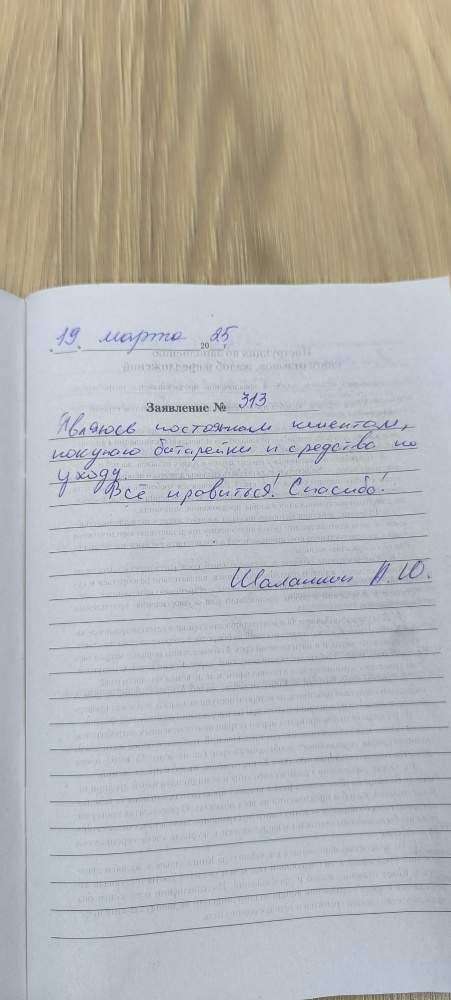 19 марта 2025 г.
Заявление № 313
Являюсь постоянам клиентам,
покупаю батарейки и средства по
уходу.
Всё нравиться! Спасибо!
А. Ю.